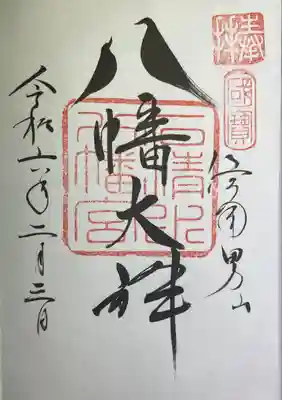 奉拝
國寶
男山
八幡大神
石清水
八幡宮
令和六年二月三日